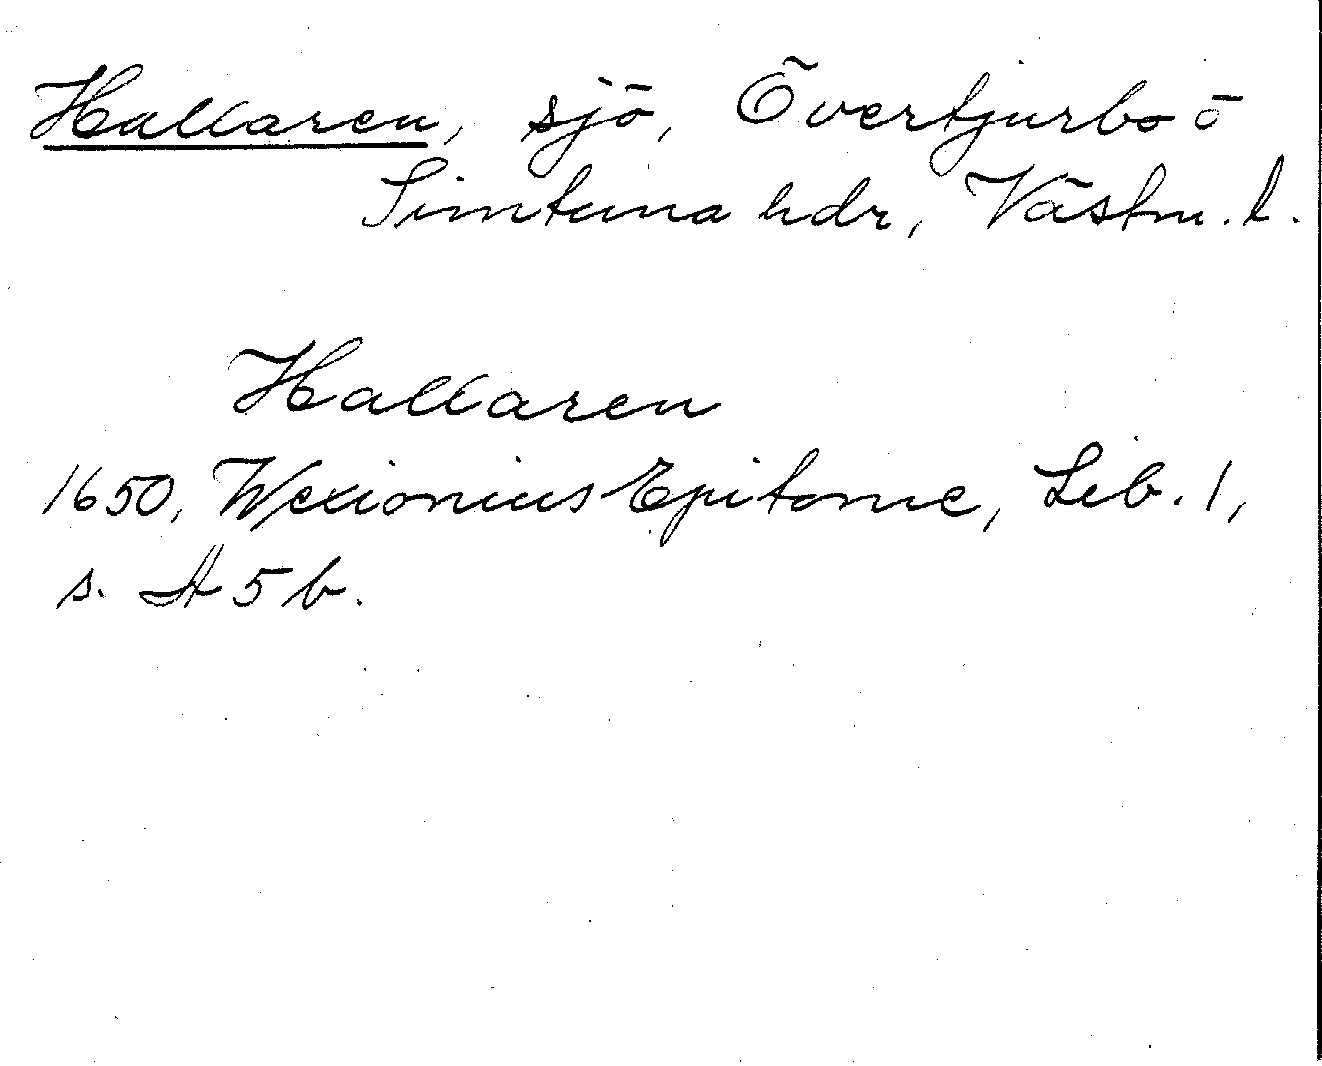 Hallaren, sjö, Övertjurbo o
Simtuna hdr, Västm. l.
Hallaren
1650, Wexionius Epitome, Lib. 1,
s. A 5 b.